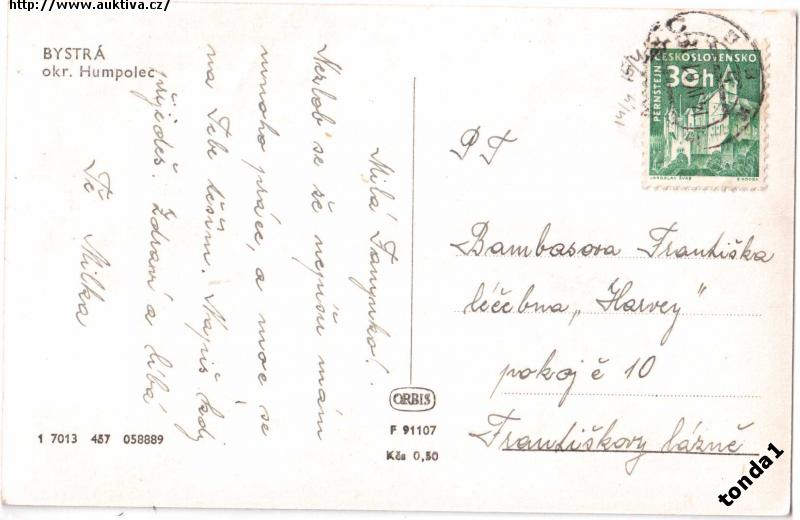 http://www.auktiva.cz/
BYSTRÁ
okr. Humpolec
Milá Fanynko!
Nezlob se že nepíšu mám
mnoho práce, a moc se
na Tebe těším. Napiš kdy
přijedeš. Zdraví a líbá
Tě Milka
1 7013 457 058889
ORBIS
F 91107
Kčs 0,50
14/4
ČESKOSLOVENSKO
30h
PERNŠTEJN
JAROSLAV ŠVÁB
PT
Bambasova Františka
léčebna „Harvey"
pokoj č 10
Františkovy lázně
tonda1